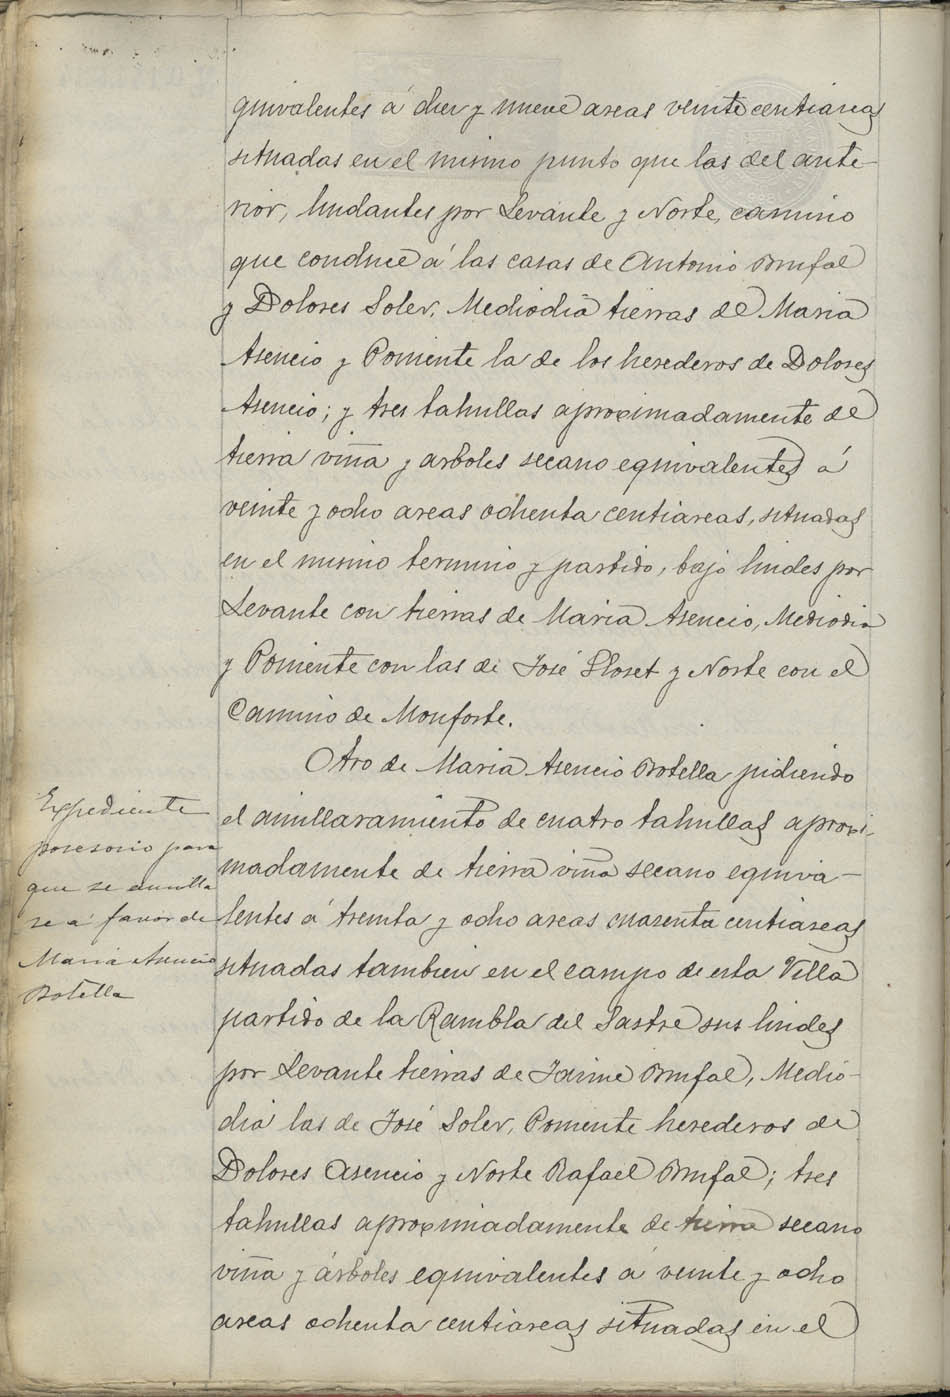 quivalentes á diez y nueve areas veinte centiareas
situadas en el mismo punto que las del ante-
rior, lindantes por Levante y Norte, camino
que conduce á las casas de Antonio Brufal
y Dolores Soler, Mediodia tierras de Maria
Asencio y Poniente la de los herederos de Dolores
Asencio; y tres tahullas aproximadamente de
tierra viña y arboles secano equivalentes á
veinte y ocho areas ochenta centiareas, situadas
en el mismo termino y partido, bajo lindes por
Levante con tierras de Maria Asencio, Mediodia
y Poniente con las de José Lloret y Norte con el
Camino de Monforte.
Otro de Maria Asencio Botella pidiendo
el amillaramiento de cuatro tahullas aproxi-
madamente de tierra viña secano equiva-
lentes á treinta y ocho areas cuarenta centiareas
situadas tambien en el campo de esta Villa
partido de la Rambla del Sastre sus lindes
por Levante tierras de Jaime Brufal, Medio-
dia las de José Soler, Poniente herederos de
Dolores Asencio y Norte Rafael Brufal; tres
tahullas aproximadamente de tierra secano
viña y árboles equivalentes á veinte y ocho
areas ochenta centiareas situadas en el
Expediente
posesorio para
que se amilla
se á favor de
Maria Asencio
Botella